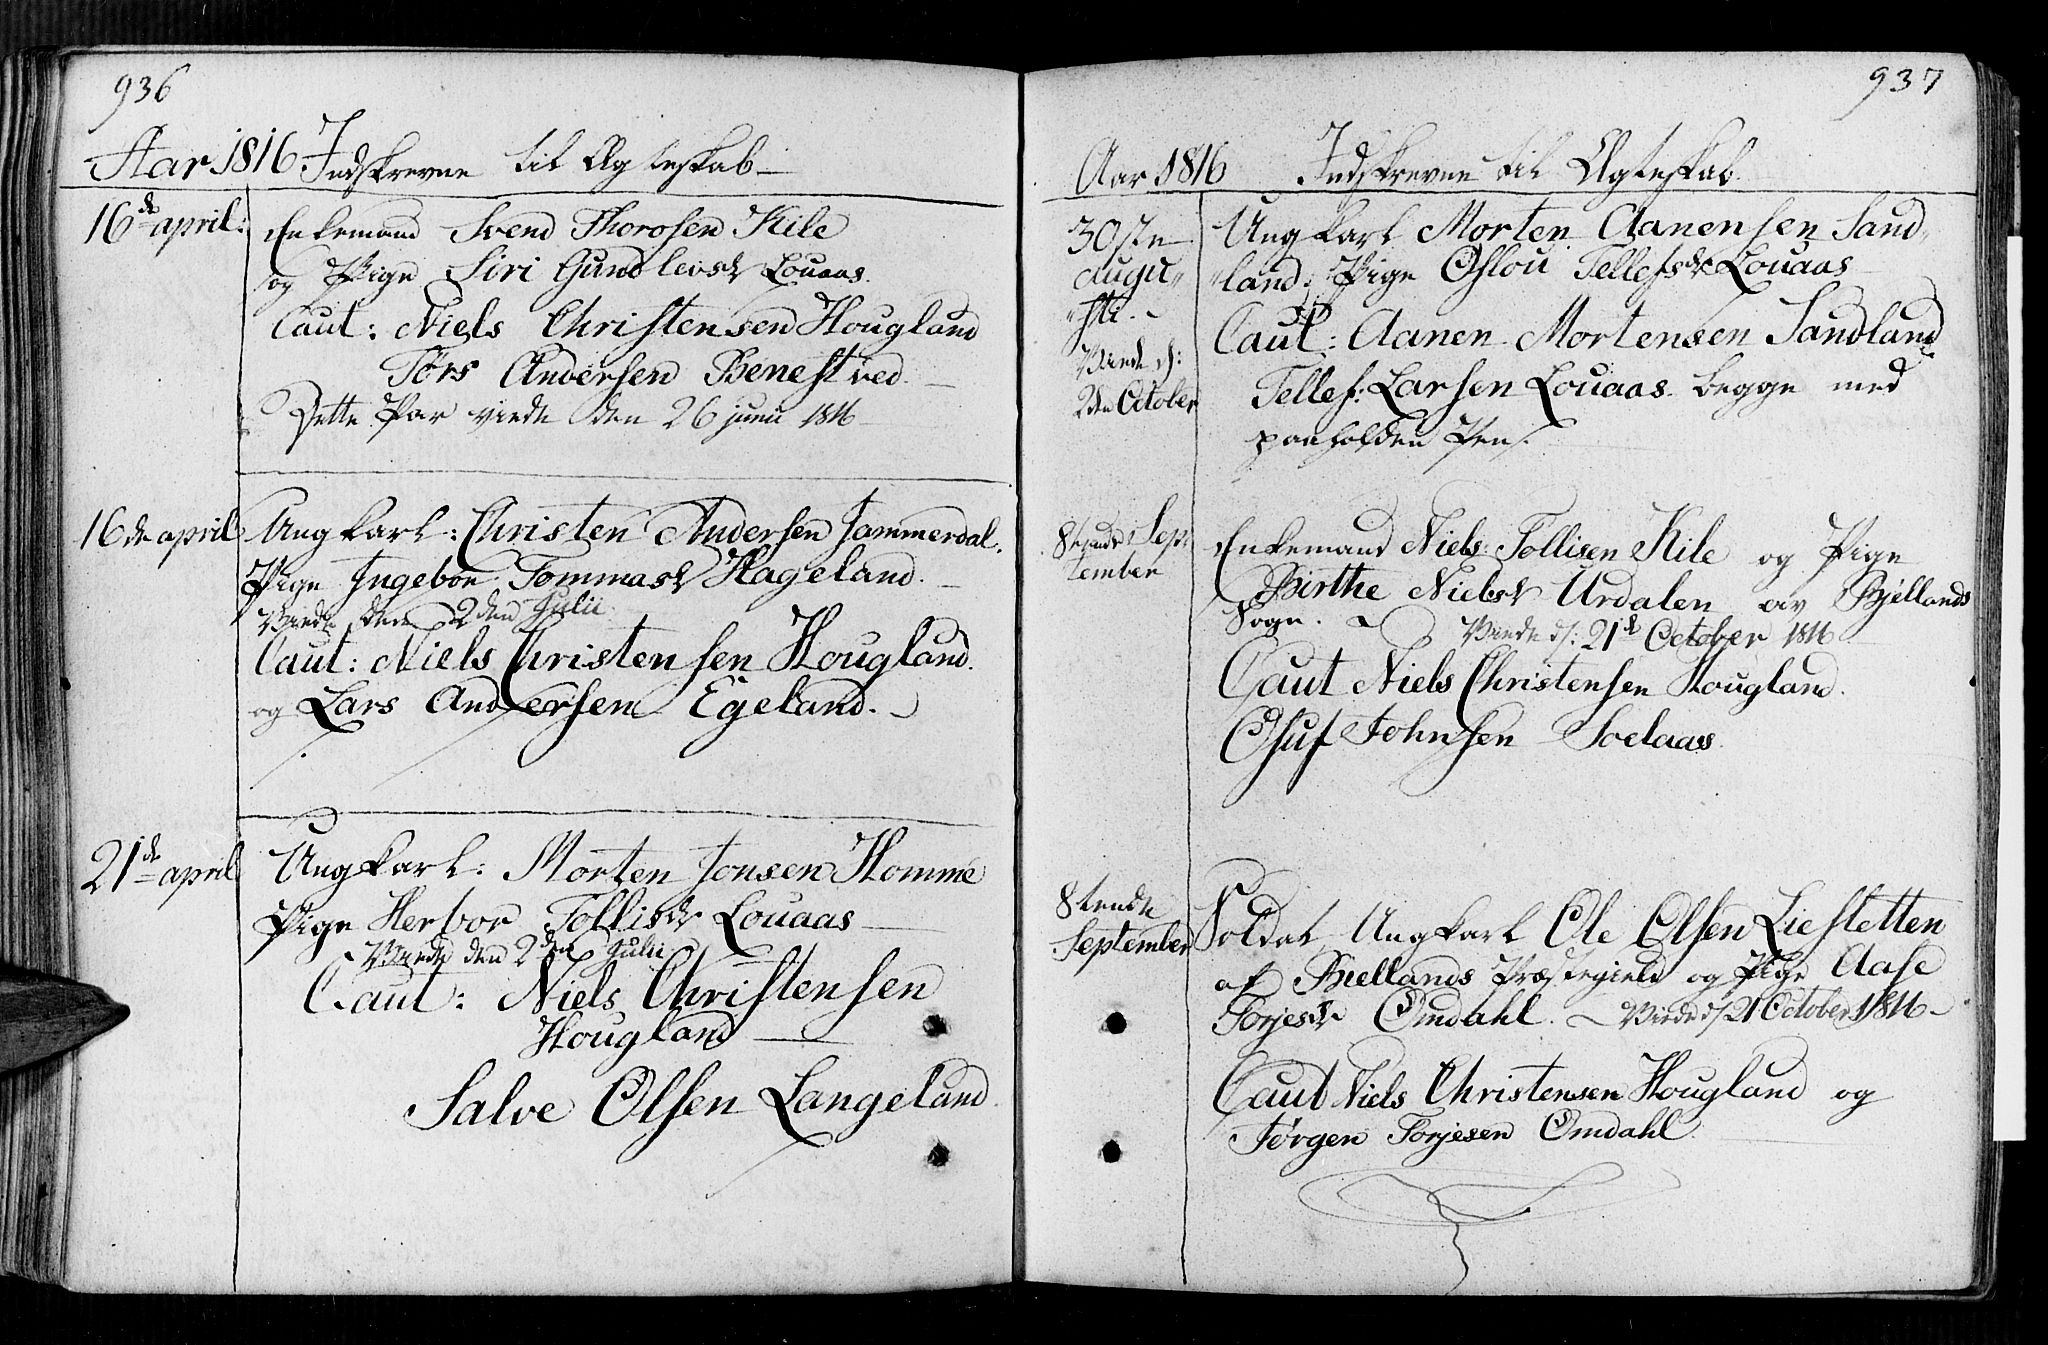 936
Aar 1816 Indskrevne til Ægteskab
16de april: Enkemand Svend Thorosen Kile
og Pige Siri Gundlevsdr Louaas.
Caut: Niels Christensen Hougland
Tørs Andersen Benestved
Dette Par viede den 26 junii 1816
16de april Ungkarl: Christen Andersen Jammerdal.
Pige Ingebor Tommasdr Hageland.
Viede den 2den Julii.
Caut: Niels Christensen Hougland.
og Lars Andersen Egeland.
21de april Ungkarl: Morten Jonsen Homme
Pige Herbor Tollisdr Louaas
Viede den 2den Julii
Caut: Niels Christensen
Hougland
Salve Olsen Langeland.
937
Aar 1816 Indskrevne til Ægteskab.
30ste Ungkarl Morten Aanensen Sand„
augu„ „land: Pige Oslou Tellefsdr Louaas
„sti. Caut: Aanen Mortensen Sandland
Viede d: Tellef: Larsen Louaas begge med
2den October
paaholden Pen.
8tende Sep„ Enkemand Niels Tollisen Kile og Pige
tember Birthe Nielsdr Urdalen av Bjellands
Sogn. Viede d: 21de October 1816
Caut Niels Christensen Hougland.
Osuf Johnsen Soelaas.
8tende
September Soldat Ungkarl Ole Olsen Liestetten
af Biellands Præstegield og Pige Aase
Torjesdr Omdahl. Viede d 21 October 1816
Caut Niels Christensen Hougland og
Jørgen Torjesen Omdahl.